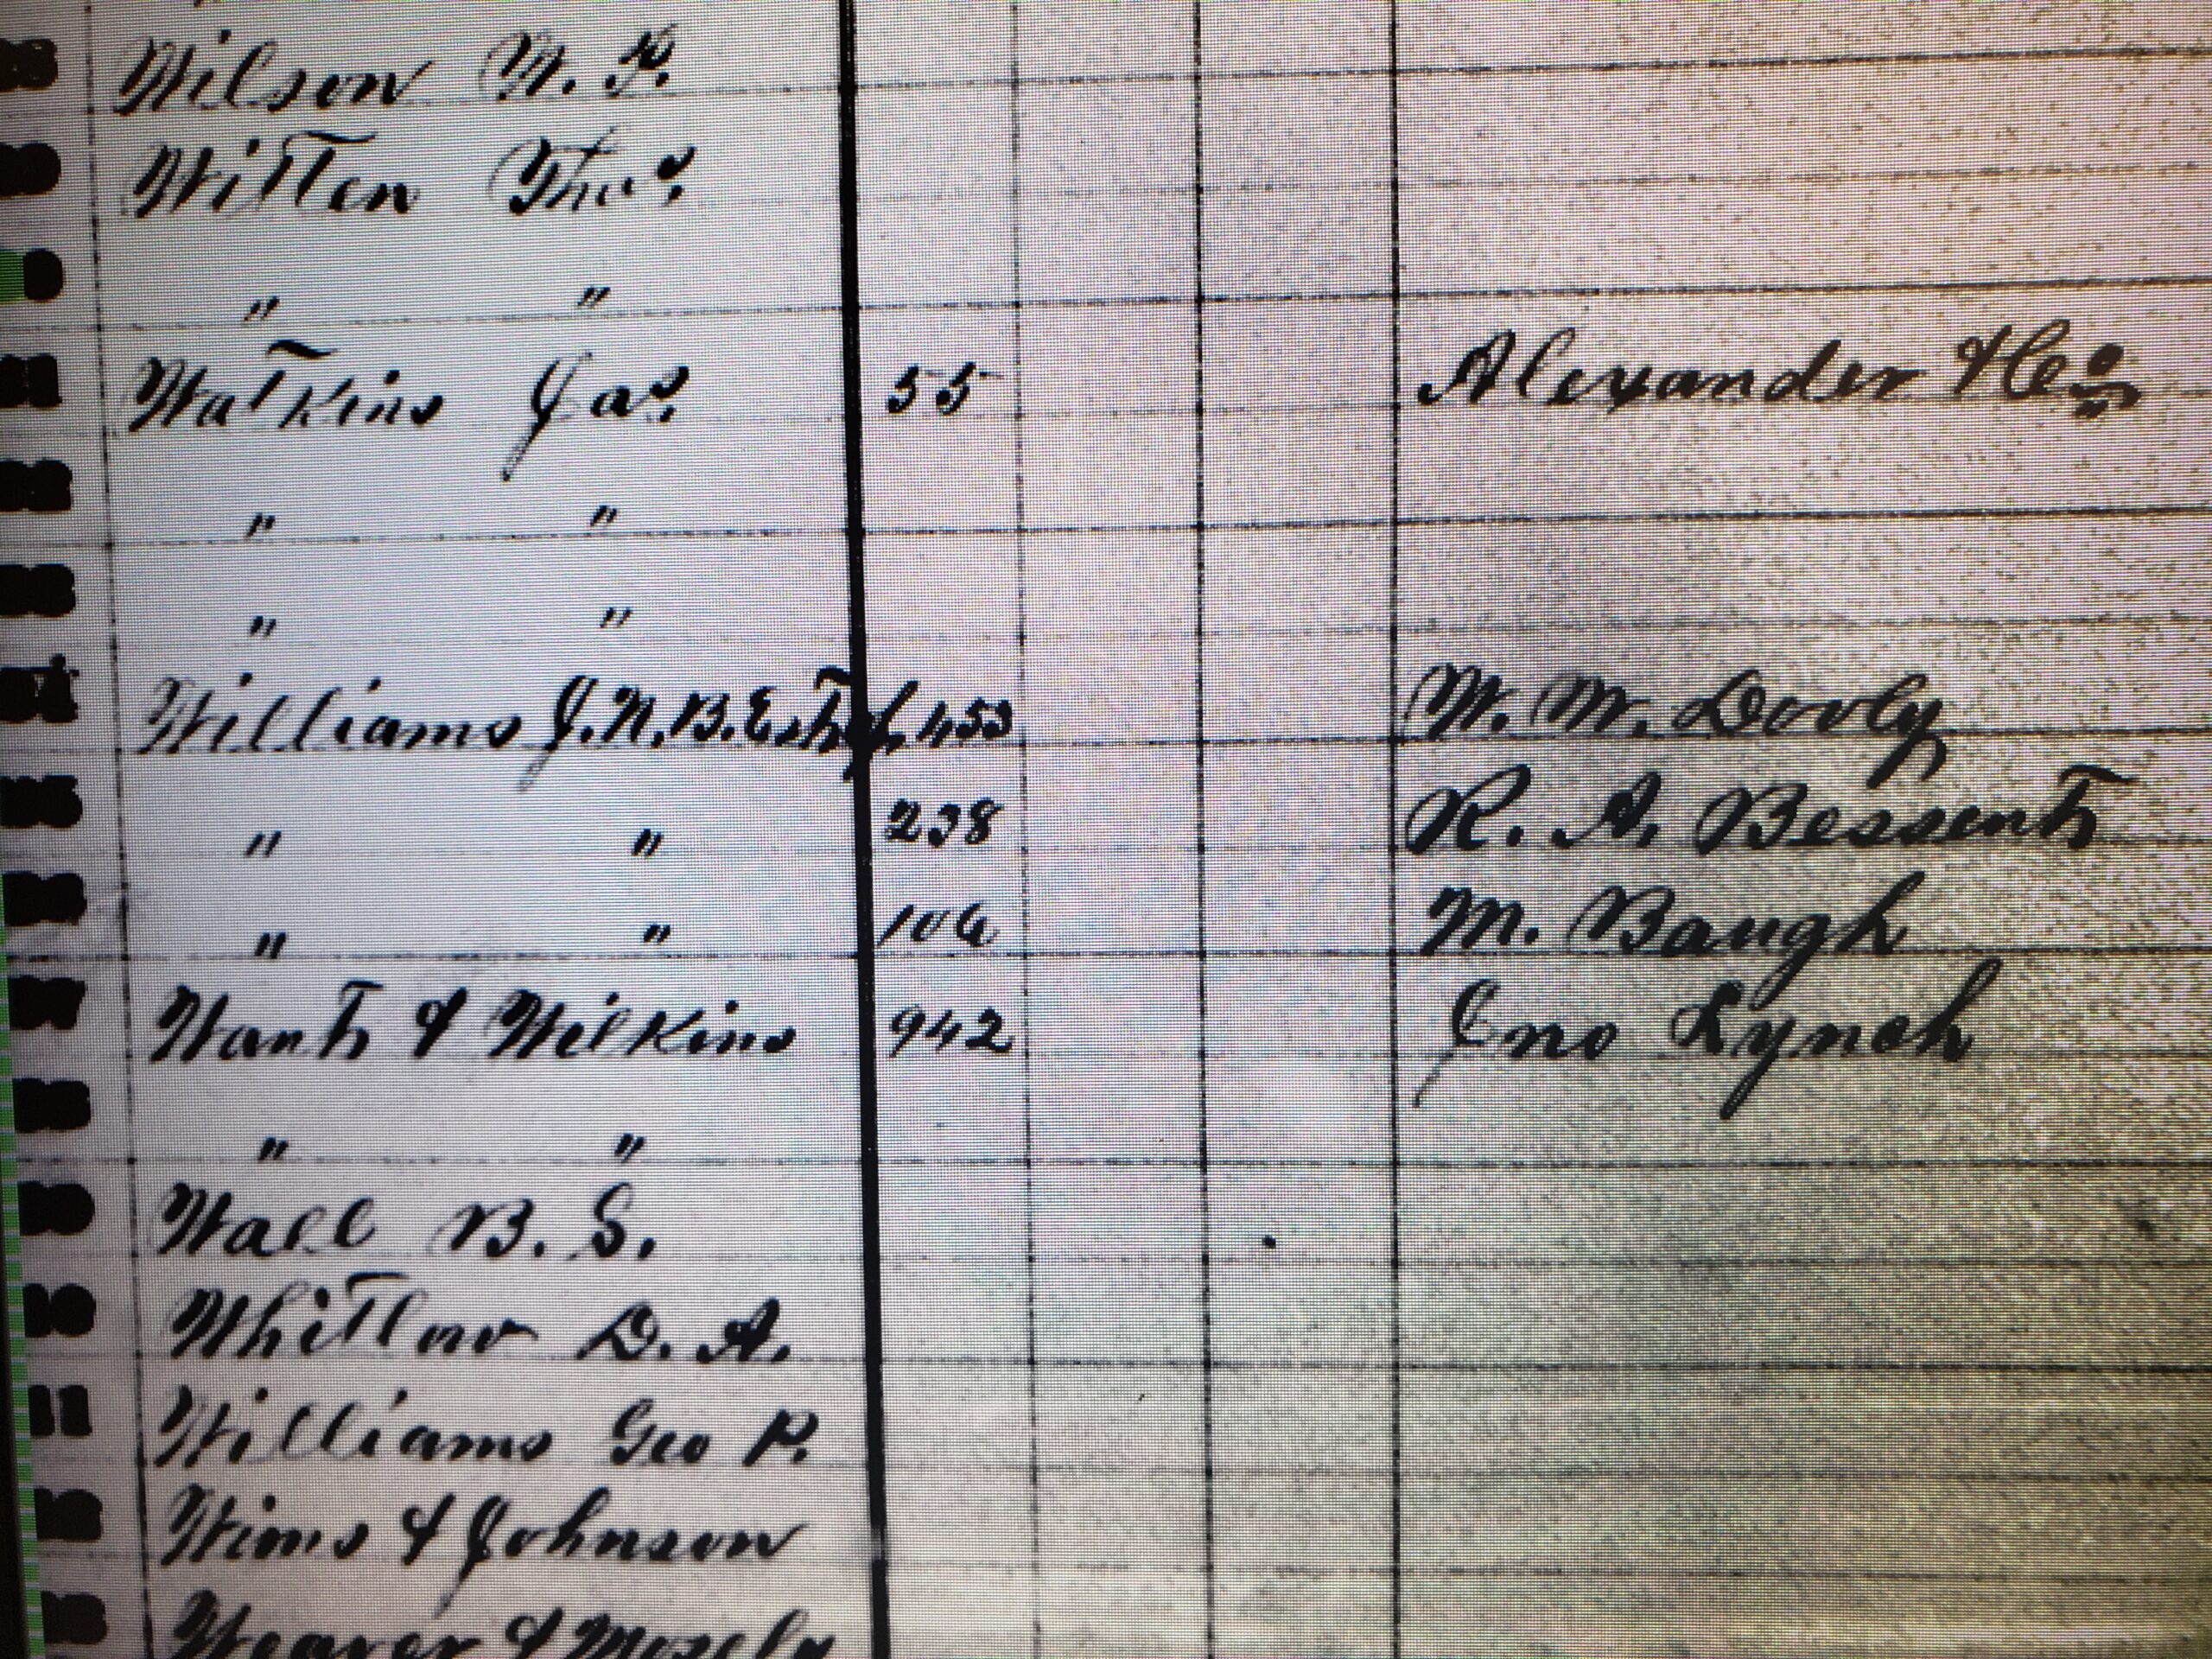 Wilson W. P.
Witten Thos.
" "
Watkins Jas. 55 Alexander & Co
" "
" "
Williams J. N. B. Est of 453 W. W. Dooly
" " 238 R. A. Bessent
" " 106 M. Baugh
Want & Wilkins 942 Jno Lynch
" "
Wall B. S.
Whitlow D. A.
Williams Geo P.
Wims & Johnson
Weaver & Mosely